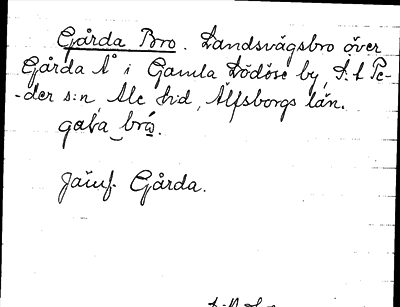 Gårda Bro. Landsvägsbro över
Gårda Å i Gamla Lödöse by, S:t Pe-
-der s:n, Ale hd, Älfsborgs län.
gaƚa_brơ.
Jämf. Gårda.